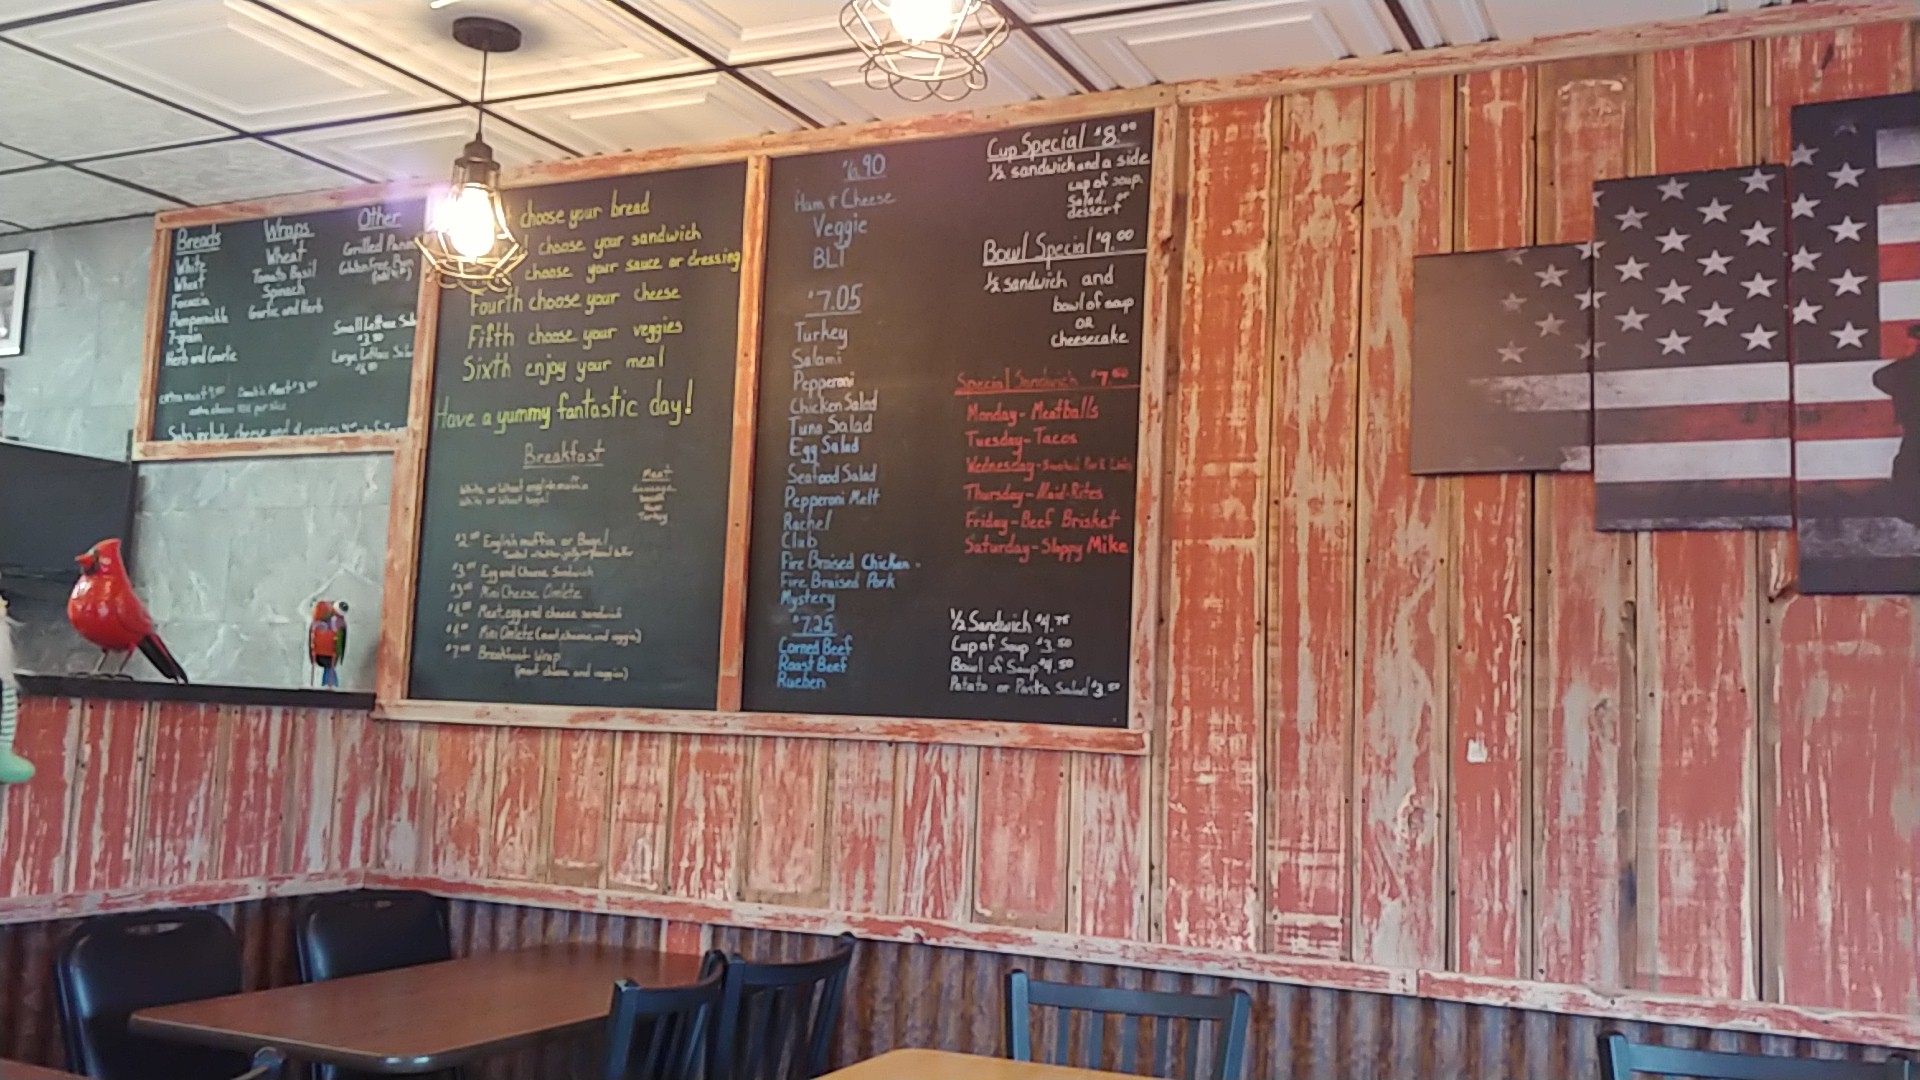 Breads
White
Wheat
Focaccia
Pumpernickle
7-grain
Herb and Garlic
Wraps
Wheat
Tomato Basil
Spinach
Garlic and Herb
Other
Grilled
Gluten Free
Small Lettuce
$3.50
Large Lettuce
extra meat Double Meat
extra cheese per slice
Subs include cheese and 4 veggies
choose your bread
choose your sandwich
choose your sauce or dressing
Fourth choose your cheese
Fifth choose your veggies
Sixth enjoy your meal
Have a yummy fantastic day!
Breakfast
White or Wheat english muffin
White or Wheat bagel
Meat
Sausage
bacon
Ham
Turkey
$2.00 English muffin or Bagel
$3.00 Egg and Cheese Sandwich
Mini Cheese Omlete
$4.00 Meat, egg and cheese sandwich
Mini Omlete (meat, cheese, and veggie)
Breakfast Wrap
(meat cheese and veggie)
$6.90
Ham & Cheese
Veggie
BLT
$7.05
Turkey
Salami
Pepperoni
Chicken Salad
Tuna Salad
Egg Salad
Seafood Salad
Pepperoni Melt
Rachel
Club
Fire Braised Chicken
Fire Braised Pork
Mystery
$7.25
Corned Beef
Roast Beef
Rueben
Cup Special $8.00
½ sandwich and a side
cup of soup,
Salad, or
dessert
Bowl Special $9.00
½ sandwich and
bowl of soup
OR
cheesecake
Special Sandwich $7.50
Monday - Meatballs
Tuesday - Tacos
Wednesday - Smoked Pork Loin
Thursday - Maid-Rites
Friday - Beef Brisket
Saturday - Sloppy Mike
½ Sandwich $4.75
Cup of Soup $3.50
Bowl of Soup $4.50
Potato or Pasta Salad $3.50